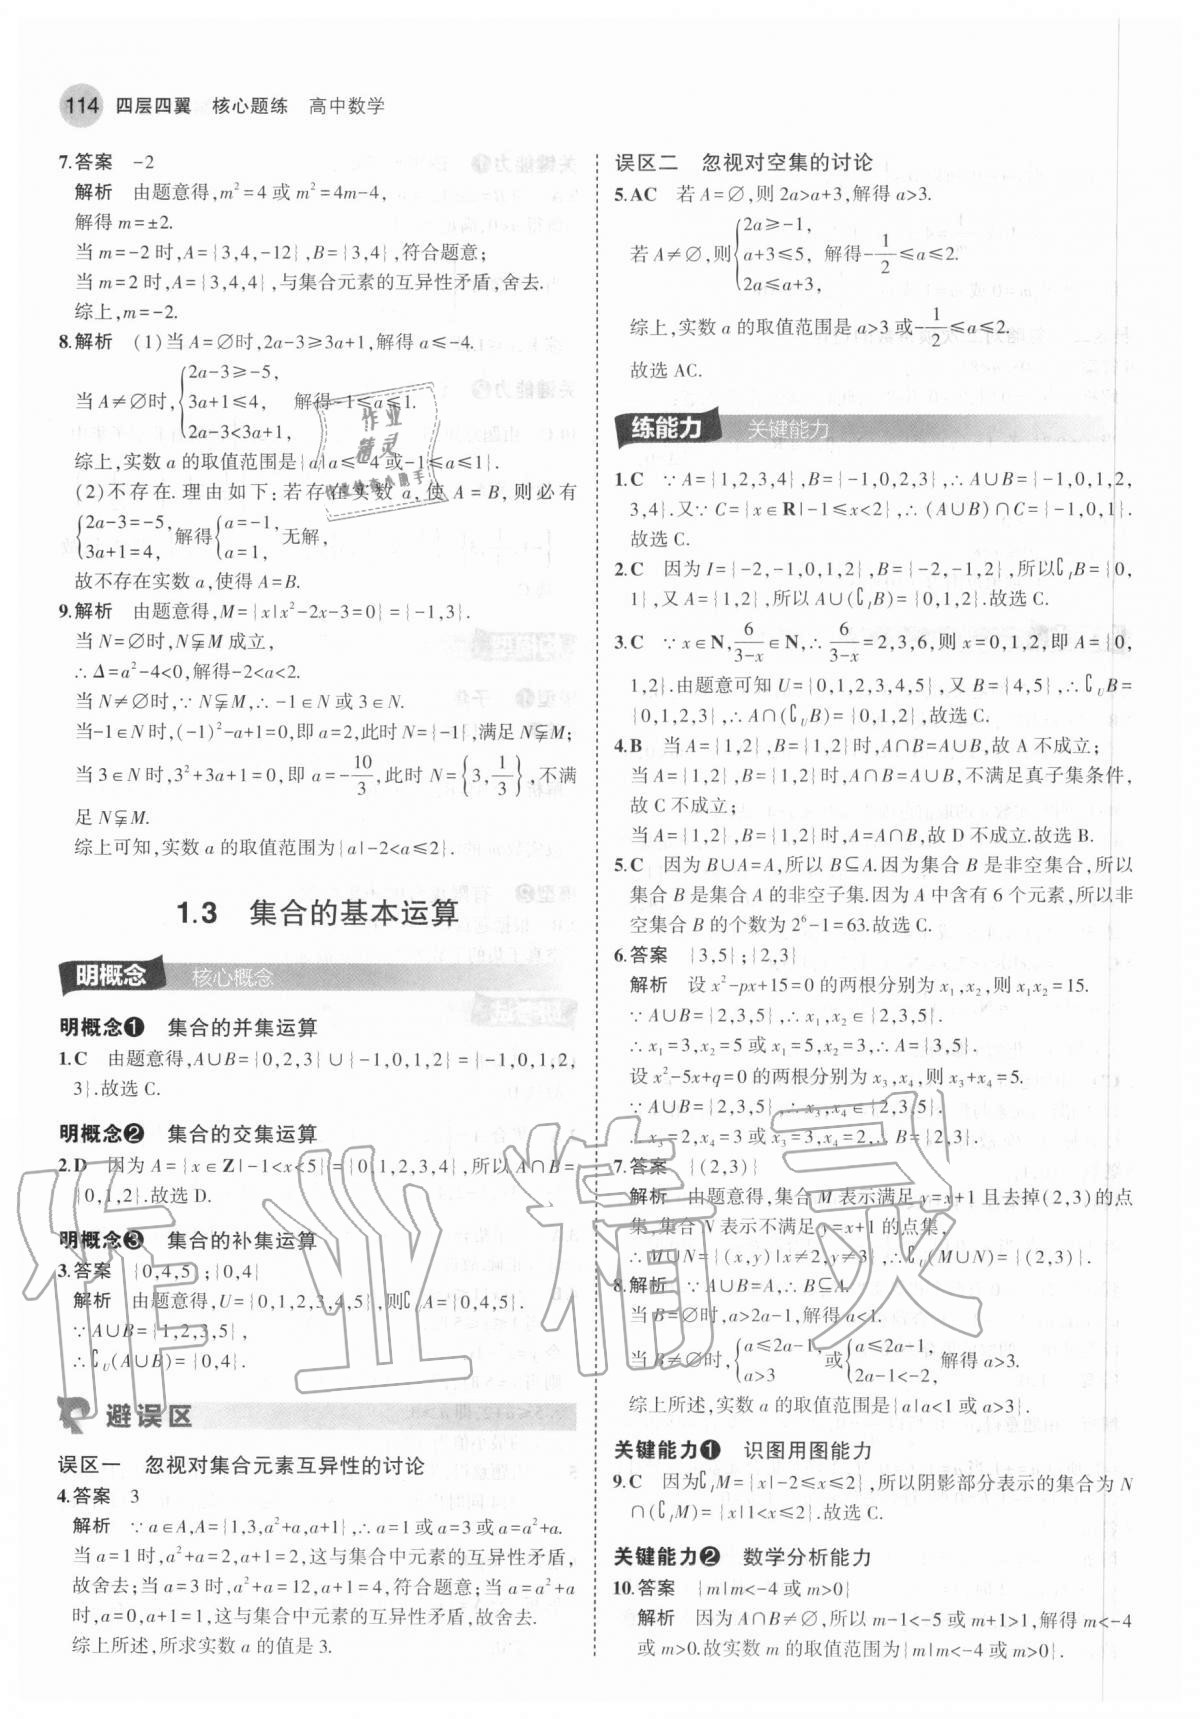 114 四层四翼 核心题练 高中数学
7.答案 -2
解析 由题意得,m²=4 或 m²=4m-4,
解得 m=±2.
当 m=-2 时,A={3,4,-12},B={3,4},符合题意;
当 m=2 时,A={3,4,4},与集合元素的互异性矛盾,舍去.
综上,m=-2.
8.解析 (1)当 A=∅时,2a-3≥3a+1,解得 a≤-4.
当 A≠∅时,{2a-3≥-5, 3a+1≤4, 2a-3<3a+1, 解得-1≤a≤1.
综上,实数 a 的取值范围是{a|a≤-4 或-1≤a≤1}.
(2)不存在.理由如下:若存在实数 a,使 A=B,则必有
{2a-3=-5, 3a+1=4, 解得{a=-1, a=1, 无解,
故不存在实数 a,使得 A=B.
9.解析 由题意得,M={x|x²-2x-3=0}={-1,3}.
当 N=∅时,N⫋M 成立,
∴Δ=a²-4<0,解得-2<a<2.
当 N≠∅时,∵N⫋M,∴-1∈N 或 3∈N.
当-1∈N 时,(-1)²-a+1=0,即 a=2,此时 N={-1},满足 N⫋M;
当 3∈N 时,3²+3a+1=0,即 a=-10/3,此时 N={3,1/3},不满
足 N⫋M.
综上可知,实数 a 的取值范围为{a|-2<a≤2}.
1.3 集合的基本运算
明概念 核心概念
明概念❶ 集合的并集运算
1.C 由题意得,A∪B={0,2,3}∪{-1,0,1,2}={-1,0,1,2,
3}.故选 C.
明概念❷ 集合的交集运算
2.D 因为 A={x∈Z|-1<x<5}={0,1,2,3,4},所以 A∩B=
{0,1,2}.故选 D.
明概念❸ 集合的补集运算
3.答案 {0,4,5};{0,4}
解析 由题意得,U={0,1,2,3,4,5},则∁UA={0,4,5}.
∵A∪B={1,2,3,5},
∴∁U(A∪B)={0,4}.
避误区
误区一 忽视对集合元素互异性的讨论
4.答案 3
解析 ∵a∈A,A={1,3,a²+a,a+1},∴a=1 或 a=3 或 a=a²+a.
当 a=1 时,a²+a=2,a+1=2,这与集合中元素的互异性矛盾,
故舍去;当 a=3 时,a²+a=12,a+1=4,符合题意;当 a=a²+a
时,a=0,a+1=1,这与集合中元素的互异性矛盾,故舍去.
综上所述,所求实数 a 的值是 3.
误区二 忽视对空集的讨论
5.AC 若 A=∅,则 2a>a+3,解得 a>3.
若 A≠∅,则{2a≥-1, a+3≤5, 2a≤a+3, 解得-1/2≤a≤2.
综上,实数 a 的取值范围是 a>3 或-1/2≤a≤2.
故选 AC.
练能力 关键能力
1.C ∵A={1,2,3,4},B={-1,0,2,3},∴A∪B={-1,0,1,2,
3,4}.又∵C={x∈R|-1≤x<2},∴(A∪B)∩C={-1,0,1}.
故选 C.
2.C 因为 I={-2,-1,0,1,2},B={-2,-1,2},所以∁IB={0,
1},又 A={1,2},所以 A∪(∁IB)={0,1,2}.故选 C.
3.C ∵x∈N,6/(3-x)∈N,∴6/(3-x)=2,3,6,则 x=0,1,2,即 A={0,
1,2}.由题意可知 U={0,1,2,3,4,5},又 B={4,5},∴∁UB=
{0,1,2,3},∴A∩(∁UB)={0,1,2},故选 C.
4.B 当 A={1,2},B={1,2}时,A∩B=A∪B,故 A 不成立;
当 A={1,2},B={1,2}时,A∩B=A∪B,不满足真子集条件,
故 C 不成立;
当 A={1,2},B={1,2}时,A=A∩B,故 D 不成立.故选 B.
5.C 因为 B∪A=A,所以 B⊆A.因为集合 B 是非空集合,所以
集合 B 是集合 A 的非空子集.因为 A 中含有 6 个元素,所以非
空集合 B 的个数为 2⁶-1=63.故选 C.
6.答案 {3,5};{2,3}
解析 设 x²-px+15=0 的两根分别为 x₁,x₂,则 x₁x₂=15.
∵A∪B={2,3,5},∴x₁,x₂∈{2,3,5}.
∴x₁=3,x₂=5 或 x₁=5,x₂=3,∴A={3,5}.
设 x²-5x+q=0 的两根分别为 x₃,x₄,则 x₃+x₄=5.
∵A∪B={2,3,5},∴x₃,x₄∈{2,3,5}.
∴x₃=2,x₄=3 或 x₃=3,x₄=2,∴B={2,3}.
7.答案 {(2,3)}
解析 由题意得,集合 M 表示满足 y=x+1 且去掉(2,3)的点
集,集合 N 表示不满足 y=x+1 的点集,
∴M∪N={(x,y)|x≠2,y≠3},∴∁U(M∪N)={(2,3)}.
8.解析 ∵A∪B=A,∴B⊆A.
当 B=∅时,a>2a-1,解得 a<1.
当 B≠∅时,{a≤2a-1, a>3 或{a≤2a-1, 2a-1<-2, 解得 a>3.
综上所述,实数 a 的取值范围是{a|a<1 或 a>3}.
关键能力❶ 识图用图能力
9.C 因为∁IM={x|-2≤x≤2},所以阴影部分表示的集合为 N
∩(∁IM)={x|1<x≤2}.故选 C.
关键能力❷ 数学分析能力
10.答案 {m|m<-4 或 m>0}
解析 因为 A∩B≠∅,所以 m-1<-5 或 m+1>1,解得 m<-4
或 m>0.故实数 m 的取值范围为{m|m<-4 或 m>0}.
作业精灵
作业
精灵